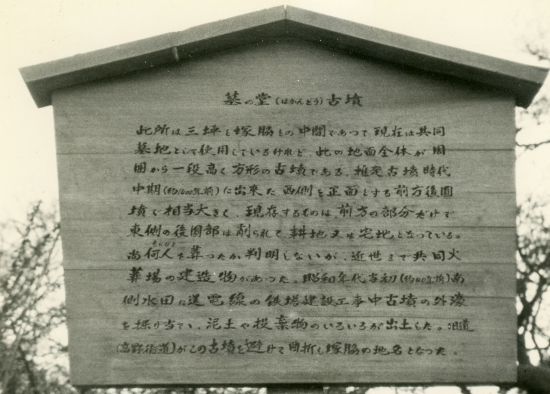 墓の堂(はかんどう)古墳
此所は三坪と塚脇との中間であつて現在は共同
墓地として使用しているけれど、此の地面全体が周
囲から一段高く方形の古墳である。推定古墳時代
中期(約1600年前)に出来た西側を正面とする前方後円
墳で相当大きく、現存するものは前方の部分だけで
東側の後円部は削られて、耕地又は宅地となつている。
尚何人を葬つたか判明しないが、近世まで共同火
葬場の建造物があつた。昭和年代当初(約40年前)南
側水田に送電線の鉄塔建設工事中古墳の外濠
を掘り当て、泥土や投棄物のいろいろが出土した。旧道
(高野街道)がこの古墳を避けて曲折し塚脇の地名となつた。